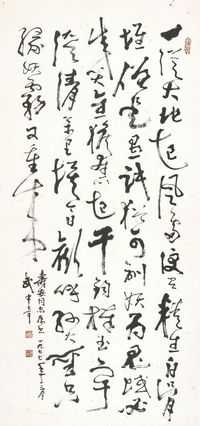 一從大地起風雷便有精生白骨
堆僧是愚氓猶可訓妖為鬼蜮必
成災金猴奮起千鈞棒玉宇
澄清萬里埃今日歡呼孫大聖只
緣妖霧又重來
同志 一九七七年十二月
武中奇